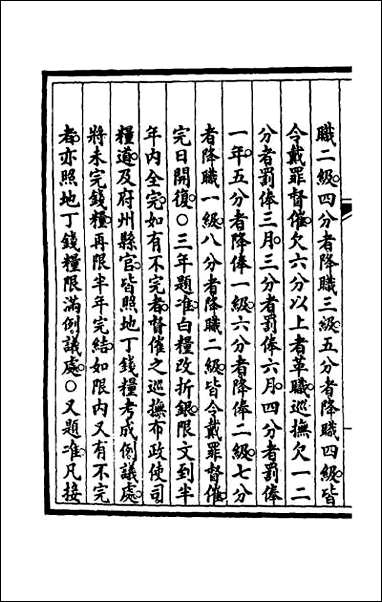 職二級四分者降職三級五分者降職四級皆
令戴罪督催欠六分以上者革職巡撫欠一二
分者罰俸三月三分者罰俸六月四分者罰俸
一年五分者降俸一級六分者降俸二級七分
者降職一級八分者降職二級皆令戴罪督催
完日開復○三年題准白糧改折銀限文到半
年內全完如有不完者督催之巡撫布政使司
糧道及府州縣官皆照地丁錢糧考成例議處
將未完錢糧再限半年完結如限內又有不完
者亦照地丁錢糧限滿例議處○又題准凡接